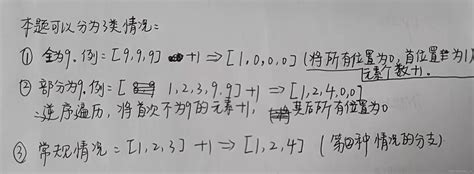 本题可以分为3类情况：
① 全为9. 例=[9,9,9] +1 ⇒ [1,0,0,0] (将所有位置为0, 首位置为1)
元素个数+1.
② 部分为9. 例=[ 1,2,3,9.9] +1 ⇒ [1,2,4,0,0]
∴逆序遍历, 将首次不为9的元素+1, 其后所有位置为0
③ 常规情况 = [1,2,3] +1 ⇒ [1,2,4] (第②种情况的分支)